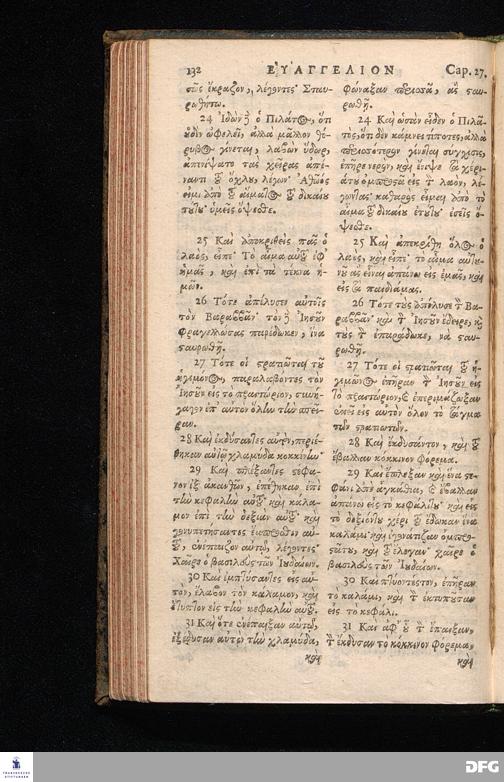 132 ΕΥΑΓΓΕΛΙΟΝ Cap. 27.
σῶς ἔκραζον, λέγοντες· Σταυ-
ρωθήτω.
24 Ἰδὼν δὲ ὁ Πιλάτος, ὅτι
οὐδὲν ὠφελεῖ, ἀλλὰ μᾶλλον θό-
ρυβος γίνεται, λαβὼν ὕδωρ,
ἀπενίψατο τὰς χεῖρας ἀπέ-
ναντι τοῦ ὄχλου, λέγων· Ἀθῶός
εἰμι ἀπὸ τοῦ αἵματος τοῦ δικαίου
τούτου· ὑμεῖς ὄψεσθε.
25 Καὶ ἀποκριθεὶς πᾶς ὁ
λαὸς, εἶπε· Τὸ αἷμα αὐτοῦ ἐφ'
ἡμᾶς, καὶ ἐπὶ τὰ τέκνα ἡ-
μῶν.
26 Τότε ἀπέλυσεν αὐτοῖς
τὸν Βαραββᾶν· τὸν δὲ Ἰησοῦν
φραγελλώσας παρέδωκεν, ἵνα
σταυρωθῇ.
27 Τότε οἱ στρατιῶται τοῦ
ἡγεμόνος, παραλαβόντες τὸν
Ἰησοῦν εἰς τὸ πραιτώριον, συνή-
γαγον ἐπ' αὐτὸν ὅλην τὴν σπεῖ-
ραν.
28 Καὶ ἐκδύσαντες αὐτὸν, περιέ-
θηκαν αὐτῷ χλαμύδα κοκκίνην·
29 Καὶ πλέξαντες στέφα-
νον ἐξ ἀκανθῶν, ἐπέθηκαν ἐπὶ
τὴν κεφαλὴν αὐτοῦ, καὶ κάλα-
μον ἐπὶ τὴν δεξιὰν αὐτοῦ· καὶ
γονυπετήσαντες ἔμπροσθεν αὐ-
τοῦ, ἐνέπαιζον αὐτῷ, λέγοντες·
Χαῖρε ὁ βασιλεὺς τῶν Ἰουδαίων.
30 Καὶ ἐμπτύσαντες εἰς αὐ-
τὸν, ἔλαβον τὸν κάλαμον, καὶ
ἔτυπτον εἰς τὴν κεφαλὴν αὐτοῦ.
31 Καὶ ὅτε ἐνέπαιξαν αὐτῷ,
ἐξέδυσαν αὐτὸν τὴν χλαμύδα,
καὶ
φώναξαν περισσὰ, ἂς σταυ-
ρωθῇ.
24 Καὶ ὡσὰν εἶδεν ὁ Πιλᾶ-
τος, ὅτι δὲν κάμνει τίποτες, ἀλλὰ
περισσότερον γίνεται σύγχισις,
ἐπῆρε νερὸν, καὶ ἔνιψε τὰ χέρι-
άτου ὀμπροστὰ εἰς τὸν λαὸν, λέ-
γωντας· καθαρὸς εἶμαι ἀπὸ τὸ
αἷμα τοῦ δικαίου ἐτούτου· ἐσεῖς ὄ-
ψεσθε.
25 Καὶ ἀπεκρίθη ὅλος ὁ
λαὸς, καὶ εἶπε· τὸ αἷμα αὐτου-
νοῦ ἂς εἶναι ἀπάνω εἰς ἐμᾶς, καὶ
εἰς τὰ παιδιάμας.
26 Τότε τοὺς ἀπόλυσε τὸν Βα-
ραββᾶν· καὶ τὸν Ἰησοῦν ἔδειρε, καὶ
τοὺς τὸν ἐπαράδωκε, νὰ σταυ-
ρωθῇ.
27 Τότε οἱ στρατιῶται τοῦ ἡ-
γεμόνος ἐπῆραν τὸν Ἰησοῦν εἰς
τὸ πραιτώριον, καὶ ἐπεριμάζωξαν
ἐπάνω εἰς αὐτὸν ὅλον τὸ τάγμα
τῶν στρατιωτῶν.
28 Καὶ ἐκδύσαντον, καὶ τοῦ
ἔβαλλαν κόκκινον φόρεμα.
29 Καὶ ἔπλεξαν καὶ ἕνα στε-
φάνι ἀπὸ ἀγκάθια, καὶ ἔβαλλαν
ἀπάνω εἰς τὸ κεφάλιτου· καὶ εἰς
τὸ δεξιόντου χέρι τοῦ ἔδωκαν ἕνα
καλάμι· καὶ ἐγονατίζαν ὀμπρο-
στάτου, καὶ τοῦ ἔλεγαν· χαῖρε ὁ
βασιλεὺς τῶν Ἰουδαίων.
30 Καὶ πτυόντεςτον, ἐπῆραν
τὸ καλάμι, καὶ τὸν ἐκτυποῦσαν
εἰς τὸ κεφάλι.
31 Καὶ ἀφ' οὗ τὸν ἔπαιξαν,
τὸν ἔκδυσαν τὸ κόκκινον φόρεμα,
καὶ
FRANCKESCHE
STIFTUNGEN
DFG